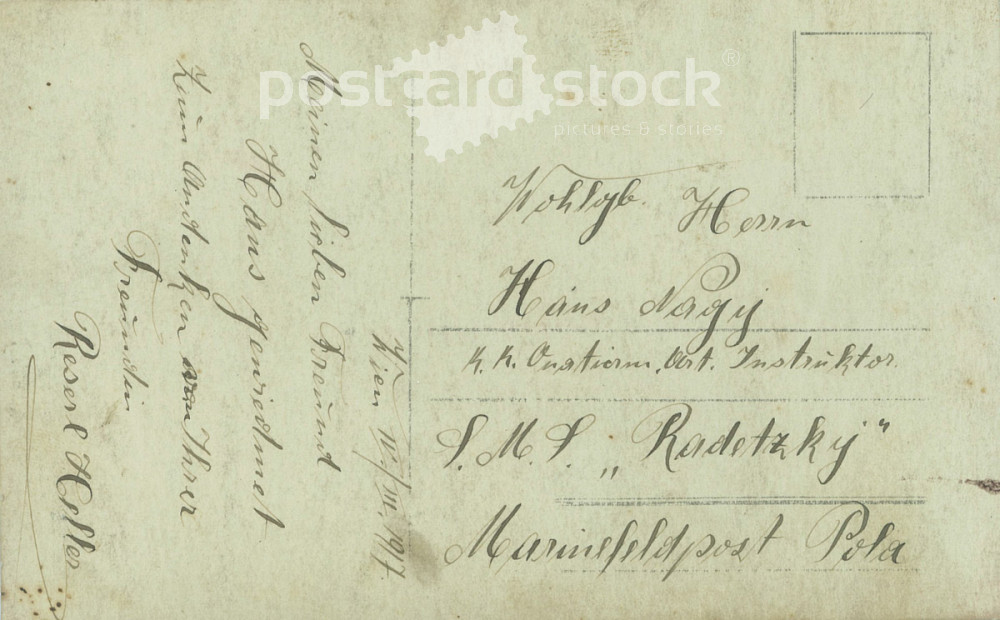 postcard stock®
pictures & stories
Wien IV/III. 1917.
Meinen lieben Freund
Hans gewiedmet
Zum Andenken von Ihrer
Freundin
Reserl Heller
Wohlgb. Herrn
Hans Nagy
K. K. Art. Instruktor.
S. M. S. „Radetzky"
Marinefeldpost Pola